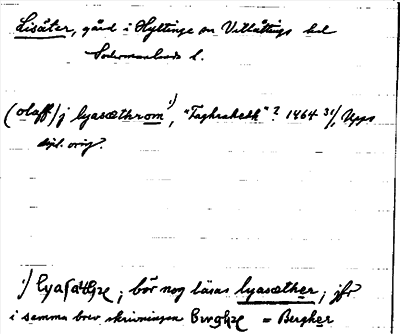 Lisäter, gård i Hyltinge sn Villåttinge hd
Södermanlands l.
(olaff) j lyasæthrom 1), "Taghrahelk"? 1464 31/1 Upps
dipl. orig.
1) lyasæthe; bör nog läsas lyasæther, jfr
i samma brev skrivningen = Bergher